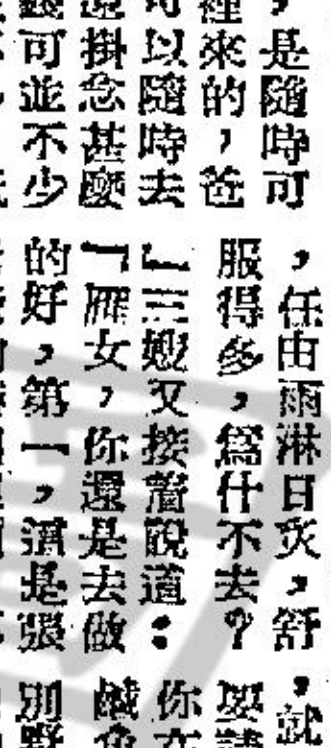 ，是隨時可
來的，爸
可以隨時去
掛念甚麼
可並不少
，任由雨淋日炙，舒
服得多，爲什不去？
」三嫂又接着說道：
「雁女，你還是去做
的好，第一，還是張
，就
要
你在
鹹魚
別野